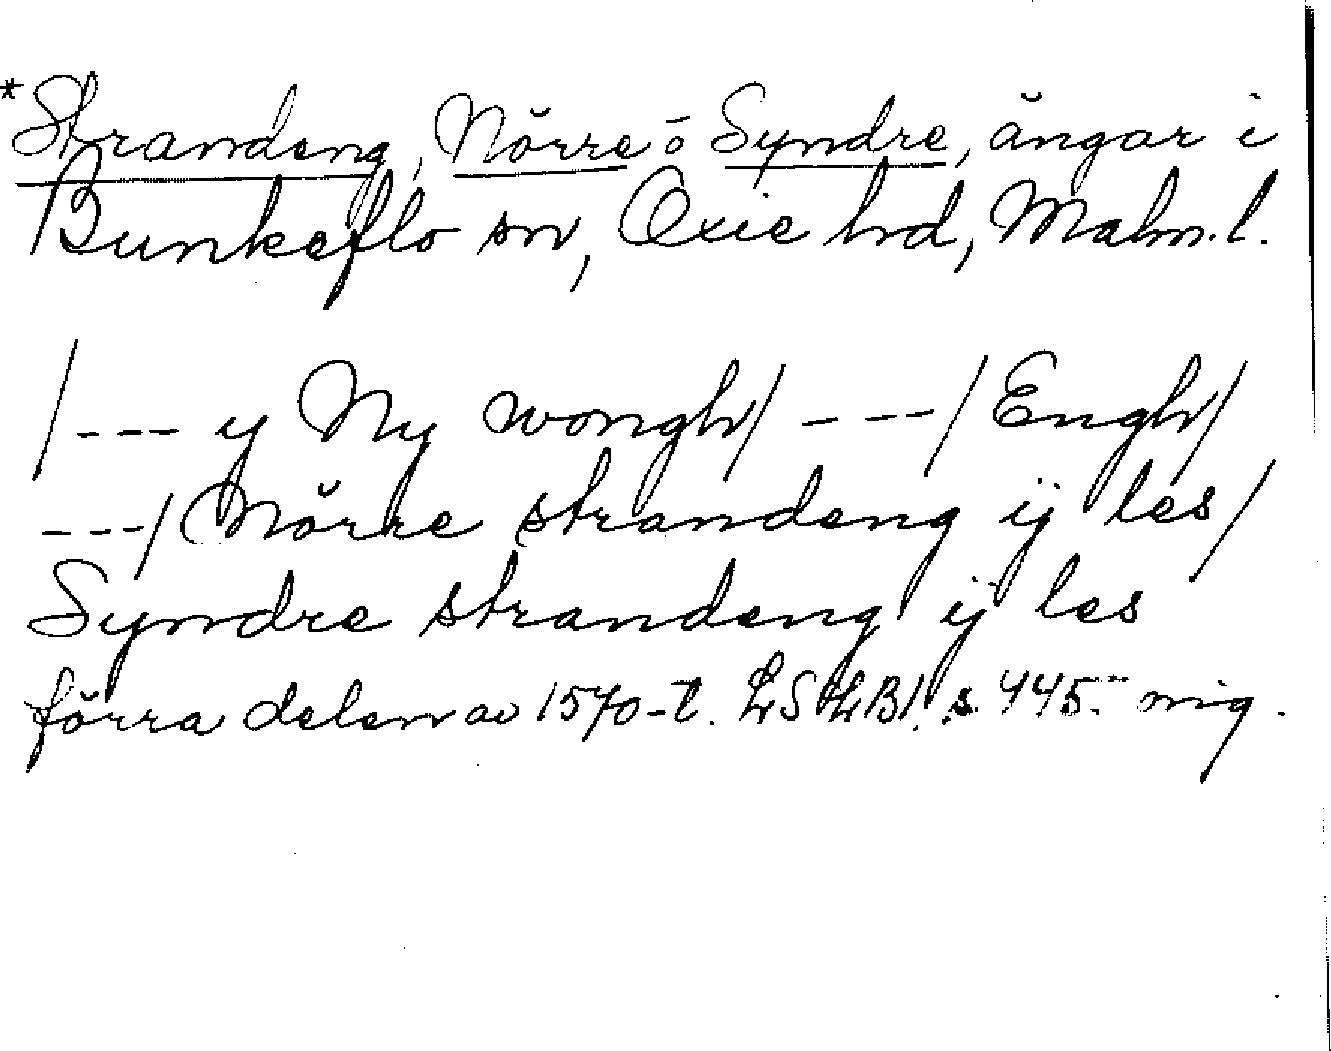 *Strandeng, Nörre o Syndre, ängar i
Bunkeflo sn, Oxie hd, Malm. l.
/--- y Ny wongh/ ---/ Engh/
---/ Nörre strandeng ij les/
Syndre strandeng ij les
förra delen av 1570-t. LSLB1. s. 445. mig.